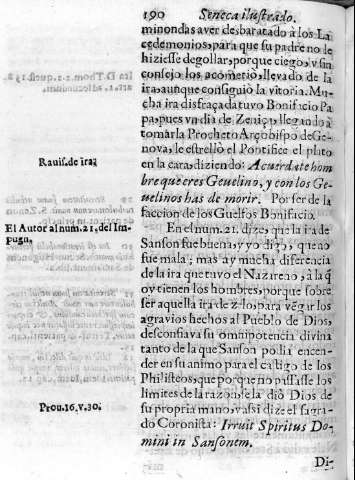 190 Seneca ilustrado.
minondas aver desbaratado à los La
cedemonios, para que su padre no le
hiziesse degollar, porque ciego, y sin
consejo los acometiò, llevado de la
ira, aunque consiguiò la vitoria. Mu-
cha ira disfraçada tuvo Bonifacio Pa
pa, pues vn dia de Zeniça, llegando à
tomarla Procheto Arçobispo de Ge-
nova, le estrellò el Pontifice el plato
en la cara, diziendo: Acuerdate hom
bre que eres Gevelino, y con los Ge-
velinos has de morir. Por ser de la
faccion de los Guelfos Bonifacio.
En el num. 21. dize, que la ira de
Sanson fue buena, y yo digo, que no
fue mala; mas ay mucha diferencia
de la ira que tuvo el Nazireno, à la q̃
oy tienen los hombres, porque sobre
ser aquella ira de zelo, para vẽgar los
agravios hechos al Pueblo de Dios,
desconfiava su omnipotencia divina
tanto de la que Sanson podia encen-
der en su animo para el castigo de los
Philisteos, que porque no passasse los
limites de la razon, se la diò Dios de
su propria mano, y assi dize el sagra-
do Coronista: Irruit Spiritus Do-
mini in Sansonem.
Di-
Ravis. de ira;
El Autor al num. 21. del Im-
pugn.
Prou. 16. v. 30.